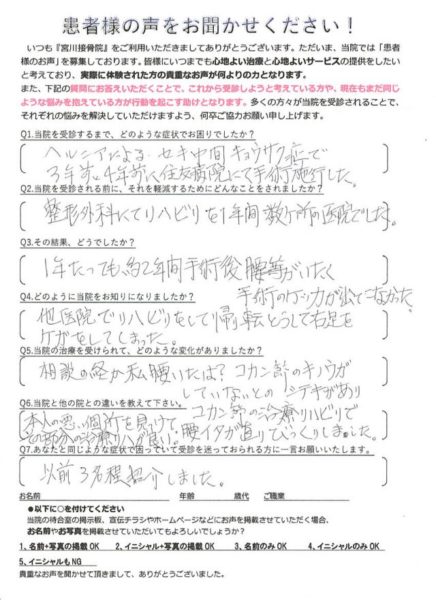 患者様の声をお聞かせください！
いつも『宮川接骨院』をご利用いただきましてありがとうございます。ただいま、当院では「患者
様のお声」を募集しております。皆様にいつまでも心地よい治療と心地よいサービスの提供をしたい
と考えており、実際に体験された方の貴重なお声が何よりの力となります。
また、下記の質問にお答えいただくことで、これから受診しようと考えている方や、現在もまだ同じ
ような悩みを抱えている方が行動を起こす助けとなります。多くの方々が当院を受診されることで、
それぞれの悩みを解決していただけますよう、何卒ご協力お願い申し上げます。
Q1.当院を受診するまで、どのような症状でお困りでしたか？
ヘルニアによる セキ中間 キョウサク症で
3年前、4年前に住友病院にて手術施行した。
Q2.当院を受診される前に、それを軽減するためにどんなことをされましたか？
整形外科にてリハビリを1年間 数ヶ所の医院でした。
Q3.その結果、どうでしたか？
1年たっても、約2年間手術後 腰等がいたく
手術のケッカが出てなかった、
Q4.どのように当院をお知りになりましたか？
他医院でリハビリをして帰り転とうして右足を
ケガをしてしまった。
Q5.当院の治療を受けられて、どのような変化がありましたか？
相談の結か私腰いたは？コカン節のキノウが
していないとの シテキがあり
Q6.当院と他の院との違いを教えて下さい。
コカン節の治療リハビリで
本人の悪い個所を見つけて、
その部分の治療リハが良い。腰イタが直りびっくりしました。
Q7.あなたと同じような症状で困っていて受診を迷っておられる方に一言お願いいたします。
以前3名程紹介しました。
お名前 年齢 歳代 ご職業
●以下に○を付けてください
当院の待合室の掲示板、宣伝チラシやホームページなどにお声を掲載させていただく場合、
お名前やお写真を掲載させていただいてもよろしいでしょうか？
1、名前+写真の掲載OK 2、イニシャル+写真の掲載OK 3、名前のみOK 4、イニシャルのみOK
5、イニシャルもNG
貴重なお声を聞かせて頂きまして、ありがとうございました。